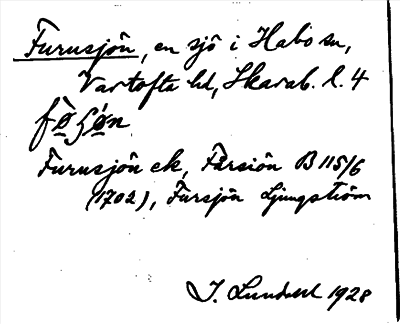 Furusjön, en sjö i Habo sn,
Vartofta hd, Skarab. l. 4
Furusjön ek, Fårsiön B 115/6
(1702), Fursjön Ljungström
J. Lundahl 1928